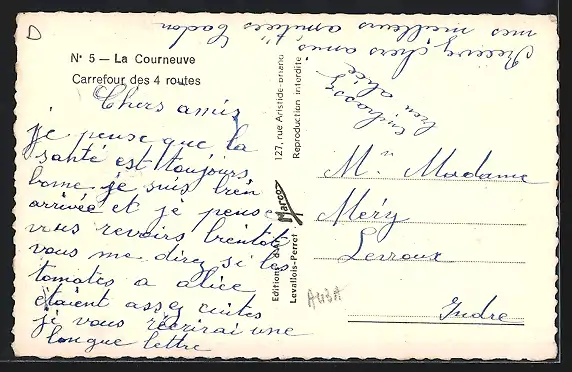 D
N° 5 — La Courneuve
Carrefour des 4 routes
Chers amis
je pense que la
santé est toujours
bonne je suis bien
arrivée et je pense
vous revoirs bientot
vous me direz si les
tomates a alice
étaient assez cuites
je vous réecrirai une
longue lettre
Recevez chers amis
mes meilleurs amitiées
Embrassez
bien alice
127, rue Aristide-Briand
Reproduction interdite
Editions d'Art Marco
Levallois-Perret
M. Madame
Méry
Levroux
Indre